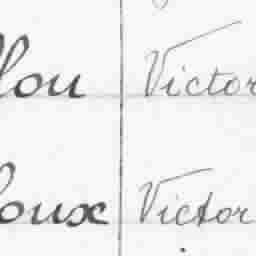 llou Victor
loux Victor